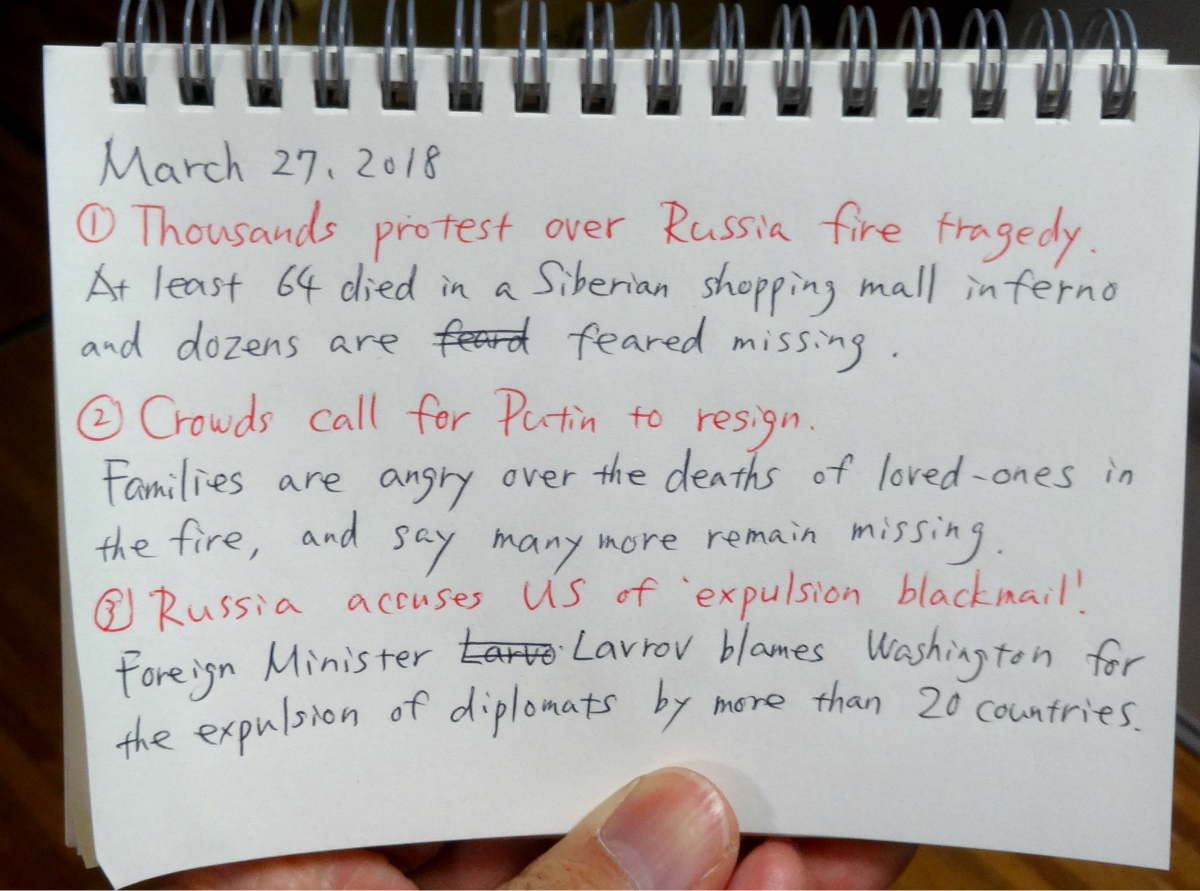 March 27, 2018
① Thousands protest over Russia fire tragedy.
At least 64 died in a Siberian shopping mall inferno
and dozens are feard feared missing.
② Crowds call for Putin to resign.
Families are angry over the deaths of loved-ones in
the fire, and say many more remain missing.
③ Russia accuses US of 'expulsion blackmail'.
Foreign Minister Larvo Lavrov blames Washington for
the expulsion of diplomats by more than 20 countries.